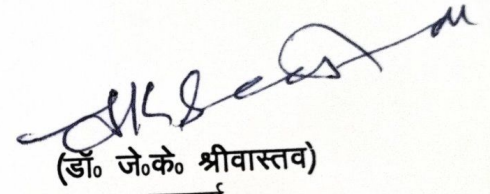 (डॉ० जे०के० श्रीवास्तव)